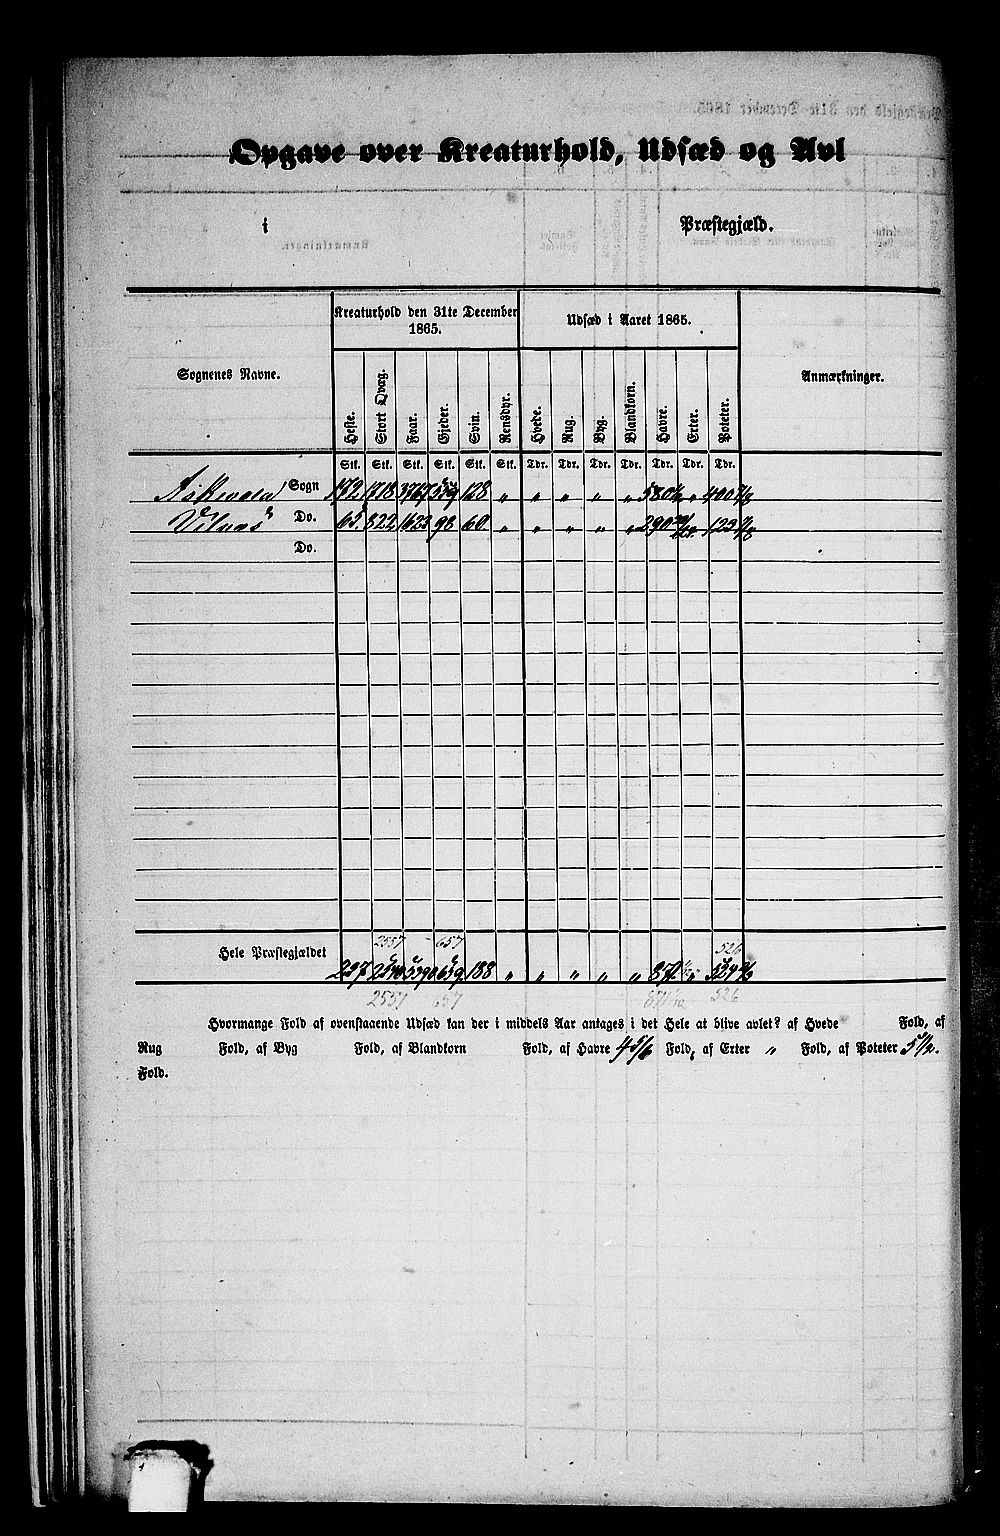 Opgave over Kreaturhold, Udsæd og Avl
i Præstegjæld.
Sognenes Navne. Kreaturhold den 31te December 1865. Udsæd i Aaret 1865. Anmærkninger.
Heste. Stort Qvæg. Faar. Gjeder. Svin. Rensdyr. Hvede. Rug. Byg. Blandkorn. Havre. Erter. Poteter.
Stk. Stk. Stk. Stk. Stk. Stk. Tdr. Tdr. Tdr. Tdr. Tdr. Tdr. Tdr.
Askevold Sogn 172 1718 3767 559 128 „ „ „ „ „ 580 „ 400 7/8
Vilnæs Do. 65. 822 1623 98 60 „ „ „ „ „ 290 125
Do.
2557 657 526
Hele Præstegjældet 237 2540 5390 659 188 „ „ „ „ „ 871 „
2557 657 526
Hvormange Fold af ovenstaaende Udsæd kan der i middels Aar antages i det Hele at blive avlet? af Hvede Fold, af
Rug Fold, af Byg Fold, af Blandkorn Fold, af Havre 4 5/6 Fold, af Erter „ Fold, af Poteter 5 1/2.
Fold.